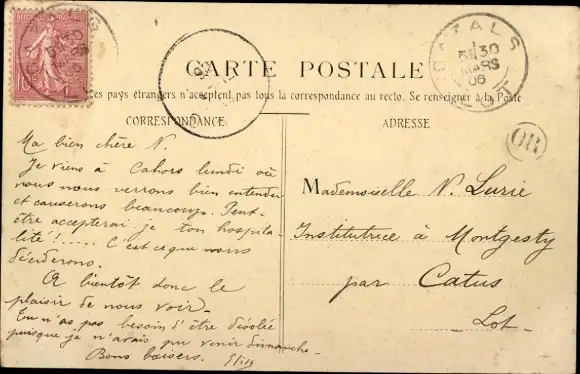 CARTE POSTALE
es pays étrangers n'acceptent pas tous la correspondance au recto. Se renseigner à la Poste
CORRESPONDANCE
ADRESSE
CAZALS
30
MARS
06
LOT
OR
10
Ma bien chère N.
Je viens à Cahors lundi où
nous nous verrons bien entendu
et causerons beaucoup. Peut-
être accepterai je ton hospita-
lité !..... C'est ce que nous
déciderons.
A bientôt donc le
plaisir de nous voir.
Tu n'as pas besoin d'être désolée
puisque je n'avais pu venir dimanche.
Bons baisers. Elisa
Mademoiselle N. Lurie
Institutrice à Montgesty
par Catus
Lot